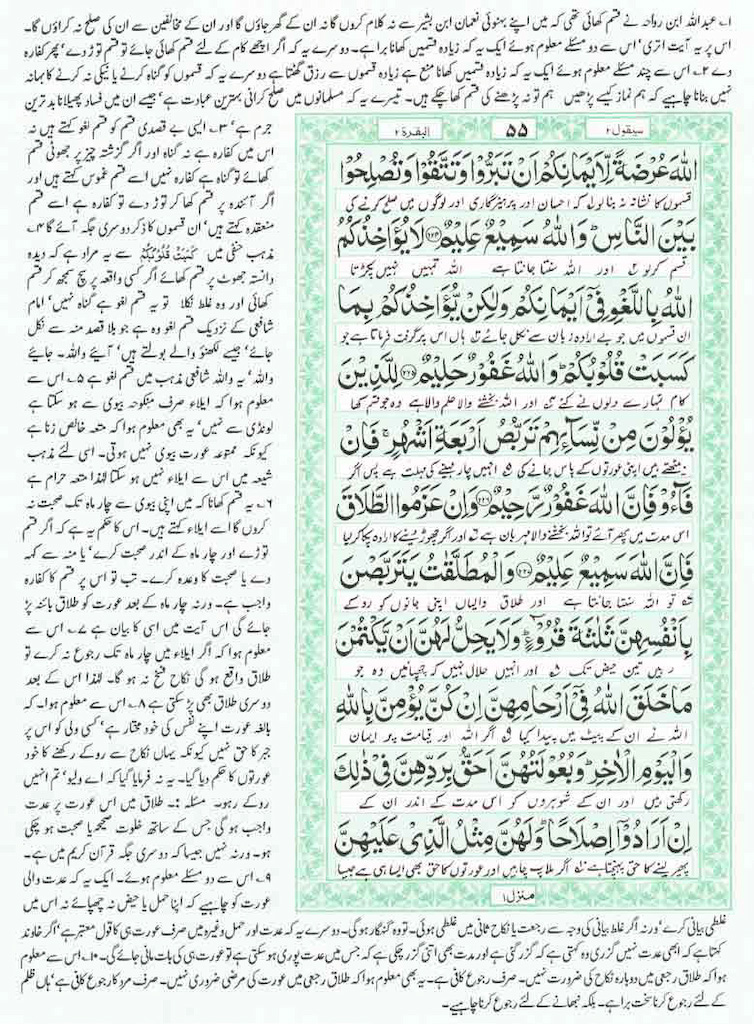 ۱؎ عبداللہ ابن رواحہ نے قسم کھائی تھی کہ میں اپنے بہنوئی نعمان ابن بشیر سے نہ کلام کروں گا نہ ان کے گھر جاؤں گا اور ان کے مخالفین سے ان کی صلح نہ کراؤں گا۔
اس پر یہ آیت اتری' اس سے دو مسئلے معلوم ہوئے ایک یہ کہ زیادہ قسمیں کھانا برا ہے۔ دوسرے یہ کہ اگر اچھے کام کے لئے قسم کھائی جائے تو قسم توڑ دے' پھر کفارہ
دے ۲؎ اس سے چند مسئلے معلوم ہوئے ایک یہ کہ زیادہ قسمیں کھانا منع ہے زیادہ قسموں سے رزق گھٹتا ہے دوسرے یہ کہ قسموں کو گناہ کرنے یا نیکی نہ کرنے کا بہانہ
نہیں بنانا چاہیے کہ ہم نماز کیسے پڑھیں ہم تو نہ پڑھنے کی قسم کھا چکے ہیں۔ تیسرے یہ کہ مسلمانوں میں صلح کرانی بہترین عبادت ہے' جیسے ان میں فساد پھیلانا بد ترین
سیقول ۲
۵۵
البقرۃ ۲
اللّٰهَ عُرْضَةً لِّاَیْمَانِكُمْ اَنْ تَبَرُّوْا وَتَتَّقُوْا وَتُصْلِحُوْا
قسموں کا نشانہ نہ بنا لو کہ احسان اور پرہیزگاری اور لوگوں میں صلح کرنے کی
بَیْنَ النَّاسِ ؕ وَاللّٰهُ سَمِیْعٌ عَلِیْمٌ ۝۲۲۴ لَا یُؤَاخِذُكُمُ
قسم کر لو اور اللہ سنتا جانتا ہے اللہ تمہیں نہیں پکڑتا
اللّٰهُ بِاللَّغْوِ فِیْۤ اَیْمَانِكُمْ وَلٰكِنْ یُّؤَاخِذُكُمْ بِمَا
ان قسموں میں جو بے ارادہ زبان سے نکل جائے ہاں اس پر گرفت فرماتا ہے جو
كَسَبَتْ قُلُوْبُكُمْ ؕ وَاللّٰهُ غَفُوْرٌ حَلِیْمٌ ۝۲۲۵ لِلَّذِیْنَ
کام تمہارے دلوں نے کئے اور اللہ بخشنے والا حلم والا ہے وہ جو قسم کھا
یُؤْلُوْنَ مِنْ نِّسَآىِٕهِمْ تَرَبُّصُ اَرْبَعَةِ اَشْهُرٍ ۚ فَاِنْ
بیٹھتے ہیں اپنی عورتوں کے پاس جانے کی انہیں چار مہینے کی مہلت ہے پس اگر
فَآءُوْ فَاِنَّ اللّٰهَ غَفُوْرٌ رَّحِیْمٌ ۝۲۲۶ وَاِنْ عَزَمُوا الطَّلَاقَ
اس مدت میں پھر آئے تو اللہ بخشنے والا مہربان ہے اور اگر چھوڑ دینے کا ارادہ پکا کر لیا
فَاِنَّ اللّٰهَ سَمِیْعٌ عَلِیْمٌ ۝۲۲۷ وَالْمُطَلَّقٰتُ یَتَرَبَّصْنَ
تو اللہ سنتا جانتا ہے اور طلاق والیاں اپنی جانوں کو روکے
بِاَنْفُسِهِنَّ ثَلٰثَةَ قُرُوْٓءٍ ؕ وَلَا یَحِلُّ لَهُنَّ اَنْ یَّكْتُمْنَ
رہیں تین حیض تک اور انہیں حلال نہیں کہ چھپائیں وہ جو
مَا خَلَقَ اللّٰهُ فِیْۤ اَرْحَامِهِنَّ اِنْ كُنَّ یُؤْمِنَّ بِاللّٰهِ
اللہ نے ان کے پیٹ میں پیدا کیا اگر اللہ اور قیامت پر ایمان
وَالْیَوْمِ الْاٰخِرِ ؕ وَبُعُوْلَتُهُنَّ اَحَقُّ بِرَدِّهِنَّ فِیْ ذٰلِكَ
رکھتی ہیں اور ان کے شوہروں کو اس مدت کے اندر ان کے
اِنْ اَرَادُوْۤا اِصْلَاحًا ؕ وَلَهُنَّ مِثْلُ الَّذِیْ عَلَیْهِنَّ
پھیر لینے کا حق پہنچتا ہے اگر ملاپ چاہیں اور عورتوں کا حق بھی ایسا ہی ہے جیسا
منزل ۱
جرم ہے' ۳؎ ایسی بے قصدی قسم کو قسم لغو کہتے ہیں نہ
اس میں کفارہ ہے نہ گناہ اور اگر گزشتہ چیز پر جھوٹی قسم
کھائے تو گناہ ہے کفارہ نہیں اسے قسم غموس کہتے ہیں اور
اگر آئندہ پر قسم کھا کر توڑ دے تو کفارہ ہے اسے قسم
منعقدہ کہتے ہیں' ان قسموں کا ذکر دوسری جگہ آئے گا ۴؎
مذہب حنفی میں كَسَبَتْ قُلُوْبُكُمْ سے یہ مراد ہے کہ دیدہ
دانستہ جھوٹ پر قسم کھائے اگر کسی واقعہ پر سچ سمجھ کر قسم
کھائی اور وہ غلط نکلا تو یہ قسم لغو ہے گناہ نہیں' امام
شافعی کے نزدیک قسم لغو وہ ہے جو بلا قصد منہ سے نکل
جائے' جیسے لکھنؤ والے بولتے ہیں' آیئے واللہ۔ جایئے
واللہ' یہ واللہ شافعی مذہب میں قسم لغو ہے ۵؎ اس سے
معلوم ہوا کہ ایلاء صرف منکوحہ بیوی سے ہو سکتا ہے
لونڈی سے نہیں' یہ بھی معلوم ہوا کہ متعہ خالص زنا ہے
کیونکہ ممتوعہ عورت بیوی نہیں ہوتی۔ اسی لئے مذہب
شیعہ میں اس سے ایلاء نہیں ہو سکتا لہٰذا متعہ حرام ہے
۶؎ یہ قسم کھانا کہ میں اپنی بیوی سے چار ماہ تک صحبت نہ
کروں گا اسے ایلاء کہتے ہیں۔ اس کا حکم یہ ہے کہ اگر قسم
توڑے اور چار ماہ کے اندر صحبت کرے' یا منہ سے کہہ
دے یا صحبت کا وعدہ کرے۔ تب تو اس پر قسم کا کفارہ
واجب ہے۔ ورنہ چار ماہ کے بعد عورت کو طلاق بائنہ پڑ
جائے گی اس آیت میں اسی کا بیان ہے ۷؎ اس سے
معلوم ہوا کہ اگر ایلاء میں چار ماہ تک رجوع نہ کرے تو
طلاق واقع ہو گی نکاح فسخ نہ ہو گا۔ لہٰذا اس کے بعد
دوسری طلاق بھی پڑ سکتی ہے ۸؎ اس سے معلوم ہوا۔ کہ
بالغہ عورت اپنے نفس کی خود مختار ہے' کسی ولی کو اس پر
جبر کا حق نہیں کیونکہ یہاں نکاح سے روکے رکھنے کا خود
عورتوں کا حکم دیا گیا۔ یہ نہ فرمایا گیا کہ اے ولیو' تم انہیں
روکے رہو۔ مسئلہ :۔ طلاق میں اس عورت پر عدت
واجب ہو گی جس کے ساتھ خلوت صحیحہ یا صحبت ہو چکی
ہو۔ ورنہ نہیں جیسا کہ دوسری جگہ قرآن کریم میں ہے۔
۹؎ اس سے دو مسئلے معلوم ہوئے۔ ایک یہ کہ عدت والی
عورت کو چاہیے کہ اپنا حمل یا حیض نہ چھپائے نہ اس میں
غلطی بیانی کرے' ورنہ اگر غلط بیانی کی وجہ سے رجعت یا نکاح ثانی میں غلطی ہوئی۔ تو وہ گنہگار ہو گی۔ دوسرے یہ کہ عدت اور حمل وغیرہ میں صرف عورت ہی کا قول معتبر ہے' اگر خاوند
کہتا ہے کہ ابھی عدت نہیں گزری وہ کہتی ہے کہ گزر گئی ہے اور مدت بھی اتنی گزر چکی ہے کہ جس میں عدت پوری ہو سکتی ہے تو عورت ہی کی بات مانی جائے گی۔ ۱۰؎ اس سے معلوم
ہوا کہ طلاق رجعی میں دوبارہ نکاح کی ضرورت نہیں۔ صرف رجوع کافی ہے۔ یہ بھی معلوم ہوا کہ طلاق رجعی میں عورت کی مرضی ضروری نہیں۔ صرف مرد کا رجوع کافی ہے' ہاں ظلم
کے لئے رجوع کرنا سخت برا ہے۔ بلکہ نبھانے کے لئے رجوع کرنا چاہیے۔